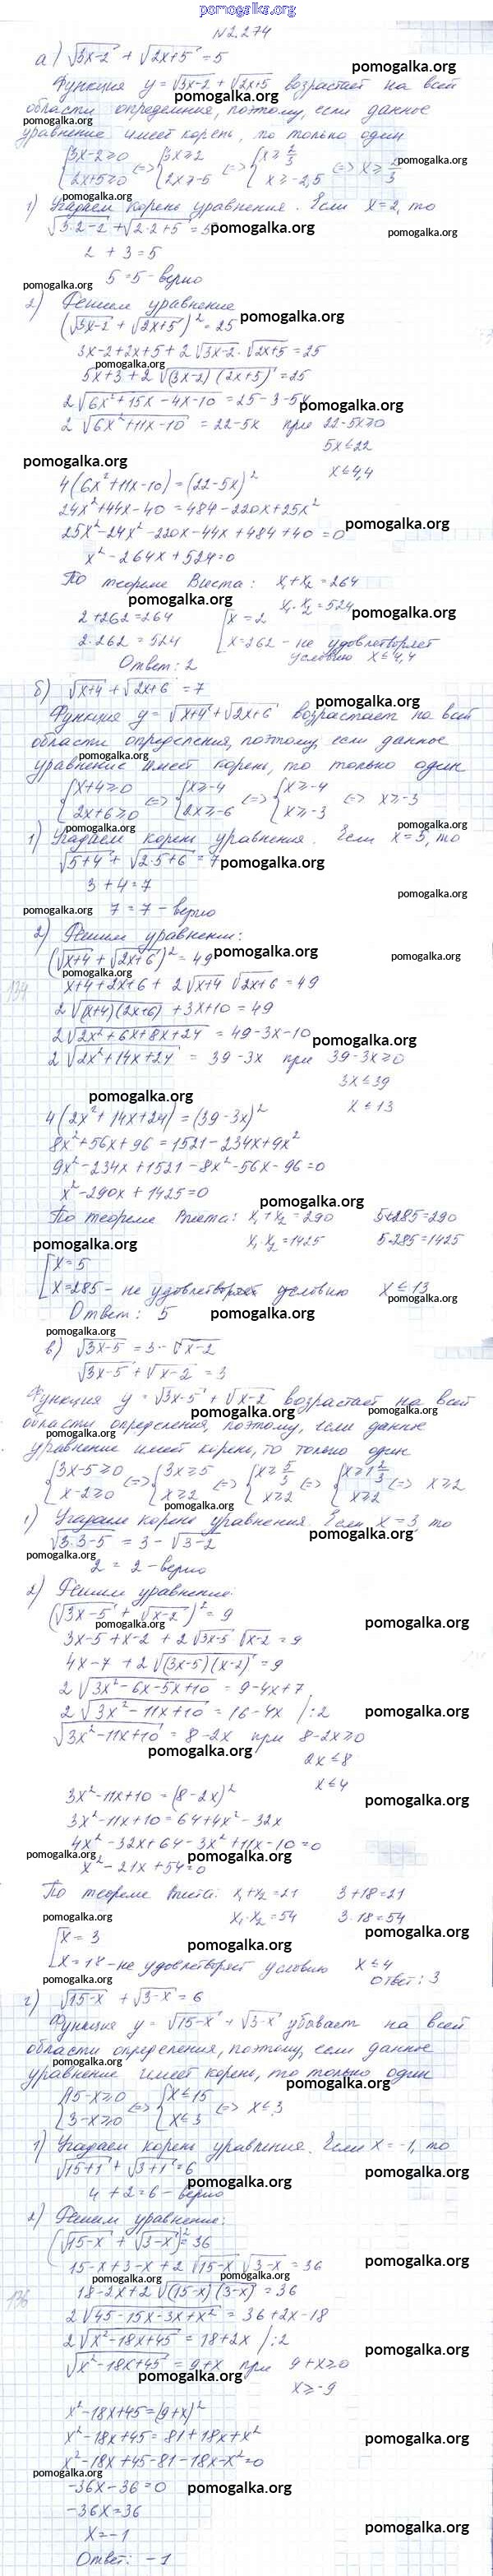 pomogalka.org
N 2.274
а) √3x-2 + √2x+5 = 5
Функция y = √3x-2 + √2x+5 возрастает на всей
области определения, поэтому, если данное
уравнение имеет корень, то только один
{3x-2≥0 {2x+5≥0 <=> {3x≥2 {2x≥-5 <=> {x≥2/3 {x≥-2,5 <=> x≥2/3
1) Угадаем корень уравнения. Если x=2, то
√3·2-2 + √2·2+5 = 5
2 + 3 = 5
5 = 5 - верно
2) Решим уравнение
(√3x-2 + √2x+5)² = 25
3x-2+2x+5+2√3x-2·√2x+5 = 25
5x+3+2√(3x-2)(2x+5) = 25
2√6x²+15x-4x-10 = 25-3-5x
2√6x²+11x-10 = 22-5x при 22-5x≥0
5x≤22
x≤4,4
4(6x²+11x-10) = (22-5x)²
24x²+44x-40 = 484-220x+25x²
25x²-24x²-220x-44x+484+40=0
x²-264x+524=0
По теореме Виета: x₁+x₂=264
x₁·x₂=524
2+262=264
2·262=524
[x=2
[x=262 - не удовлетворяет
условию x≤4,4
Ответ: 2
б) √x+4 + √2x+6 = 7
Функция y = √x+4 + √2x+6 возрастает на всей
области определения, поэтому, если данное
уравнение имеет корень, то только один
{x+4≥0 {2x+6≥0 <=> {x≥-4 {2x≥-6 <=> {x≥-4 {x≥-3 <=> x≥-3
1) Угадаем корень уравнения. Если x=5, то
√5+4 + √2·5+6 = 7
3+4=7
7=7 - верно
2) Решим уравнение:
(√x+4 + √2x+6)² = 49
134
x+4+2x+6+2√x+4 √2x+6 = 49
2√(x+4)(2x+6) + 3x+10 = 49
2√2x²+6x+8x+24 = 49-3x-10
2√2x²+14x+24 = 39-3x при 39-3x≥0
3x≤39
x≤13
4(2x²+14x+24) = (39-3x)²
8x²+56x+96 = 1521-234x+9x²
9x²-234x+1521-8x²-56x-96=0
x²-290x+1425=0
По теореме Виета: x₁+x₂=290 5+285=290
x₁·x₂=1425 5·285=1425
[x=5
[x=285 - не удовлетворяет условию x≤13
Ответ: 5
в) √3x-5 = 3-√x-2
√3x-5 + √x-2 = 3
Функция y = √3x-5 + √x-2 возрастает на всей
области определения, поэтому, если данное
уравнение имеет корень, то только один
{3x-5≥0 {x-2≥0 <=> {3x≥5 {x≥2 <=> {x≥5/3 {x≥2 <=> {x≥1 2/3 {x≥2 <=> x≥2
1) Угадаем корень уравнения. Если x=3, то
√3·3-5 = 3-√3-2
2 = 2 - верно
2) Решим уравнение:
(√3x-5 + √x-2)² = 9
3x-5+x-2+2√3x-5 √x-2 = 9
4x-7+2√(3x-5)(x-2) = 9
2√3x²-6x-5x+10 = 9-4x+7
2√3x²-11x+10 = 16-4x /:2
√3x²-11x+10 = 8-2x при 8-2x≥0
2x≤8
x≤4
3x²-11x+10 = (8-2x)²
3x²-11x+10 = 64+4x²-32x
4x²-32x+64-3x²+11x-10=0
x²-21x+54=0
По теореме Виета: x₁+x₂=21 3+18=21
x₁·x₂=54 3·18=54
[x=3
[x=18 - не удовлетворяет условию x≤4
Ответ: 3
г) √15-x + √3-x = 6
Функция y = √15-x + √3-x убывает на всей
области определения, поэтому, если данное
уравнение имеет корень, то только один
{15-x≥0 {3-x≥0 <=> {x≤15 {x≤3 <=> x≤3
1) Угадаем корень уравнения. Если x=-1, то
√15+1 + √3+1 = 6
4+2=6 - верно
2) Решим уравнение:
(√15-x + √3-x)² = 36
15-x+3-x+2√15-x √3-x = 36
136
18-2x+2√(15-x)(3-x) = 36
2√45-15x-3x+x² = 36+2x-18
2√x²-18x+45 = 18+2x /:2
√x²-18x+45 = 9+x при 9+x≥0
x≥-9
x²-18x+45 = (9+x)²
x²-18x+45 = 81+18x+x²
x²-18x+45-81-18x-x²=0
-36x-36=0
-36x=36
x=-1
Ответ: -1